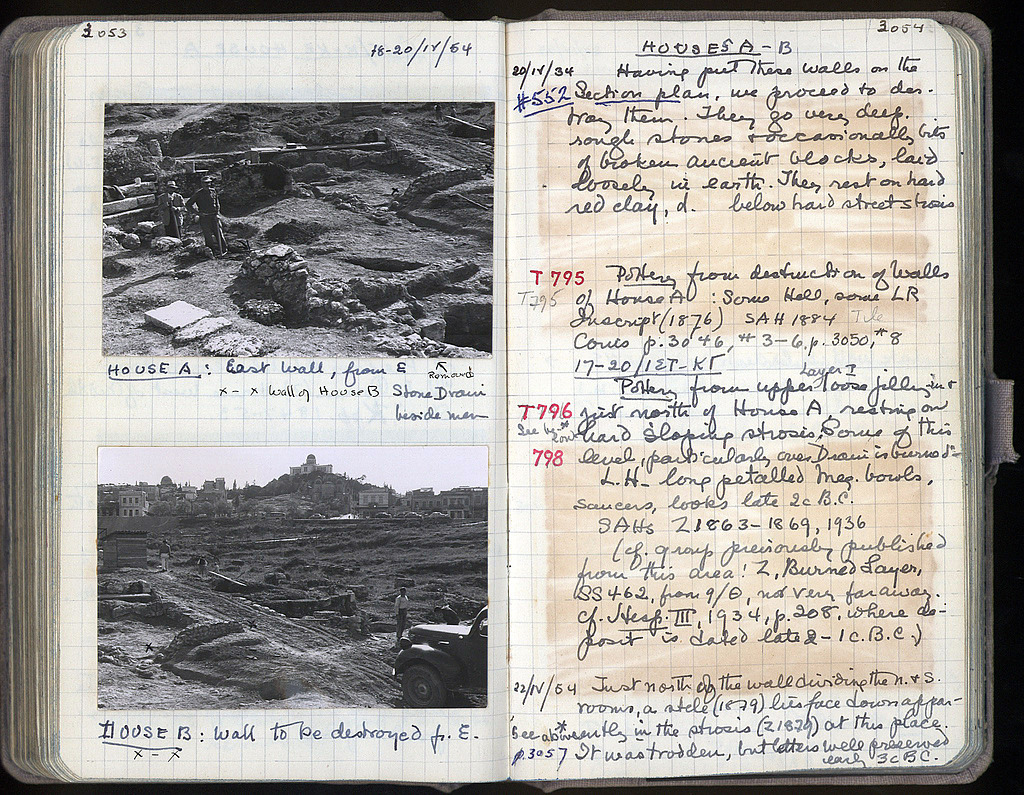 3053
18-20/IV/54
HOUSE A: East Wall, from E
Removed
x - x Wall of House B Stone Drain
beside men
HOUSE B: wall to be destroyed fr. E.
x - x
3054
HOUSES A - B
20/IV/54 Having put these walls on the
#552 Section plan, we proceed to des-
troy them. They go very deep,
rough stones + occasionally bits
of broken ancient blocks, laid
loosely in earth. They rest on hard
red clay, d. below hard street strosis
T 795 Pottery from destruction of Walls
T 795 of House A : Some Hell, some LR
Inscript (1876) SAH 1884 Tile
Coins p. 3046, #3-6, p. 3050, #8
17-20/IET-KΓ
Layer I
Pottery from upper loose filling in +
T796 just north of House A, resting on
See be-low hard sloping strosis. Some of this
798 level, particularly over Drain is burned
L.H. long petalled Meg. bowls,
saucers, looks late 2c B.C.
SAHs Z1863-1869, 1936
(cf. group previously published
from this area! Z, Burned Layer,
SS 462, from 9/Θ, not very far away.
cf. Hesp. III, 1934, p. 208, where de-
posit is dated late 2 - 1 c. B.C.)
22/IV/54 Just north of the wall dividing the n. + s.
rooms, a stele (1879) lies face down appar-
See also ently in the strosis (Z 1879) at this place.
p. 3057 It was trodden, but letters well preserved
early 3c BC.